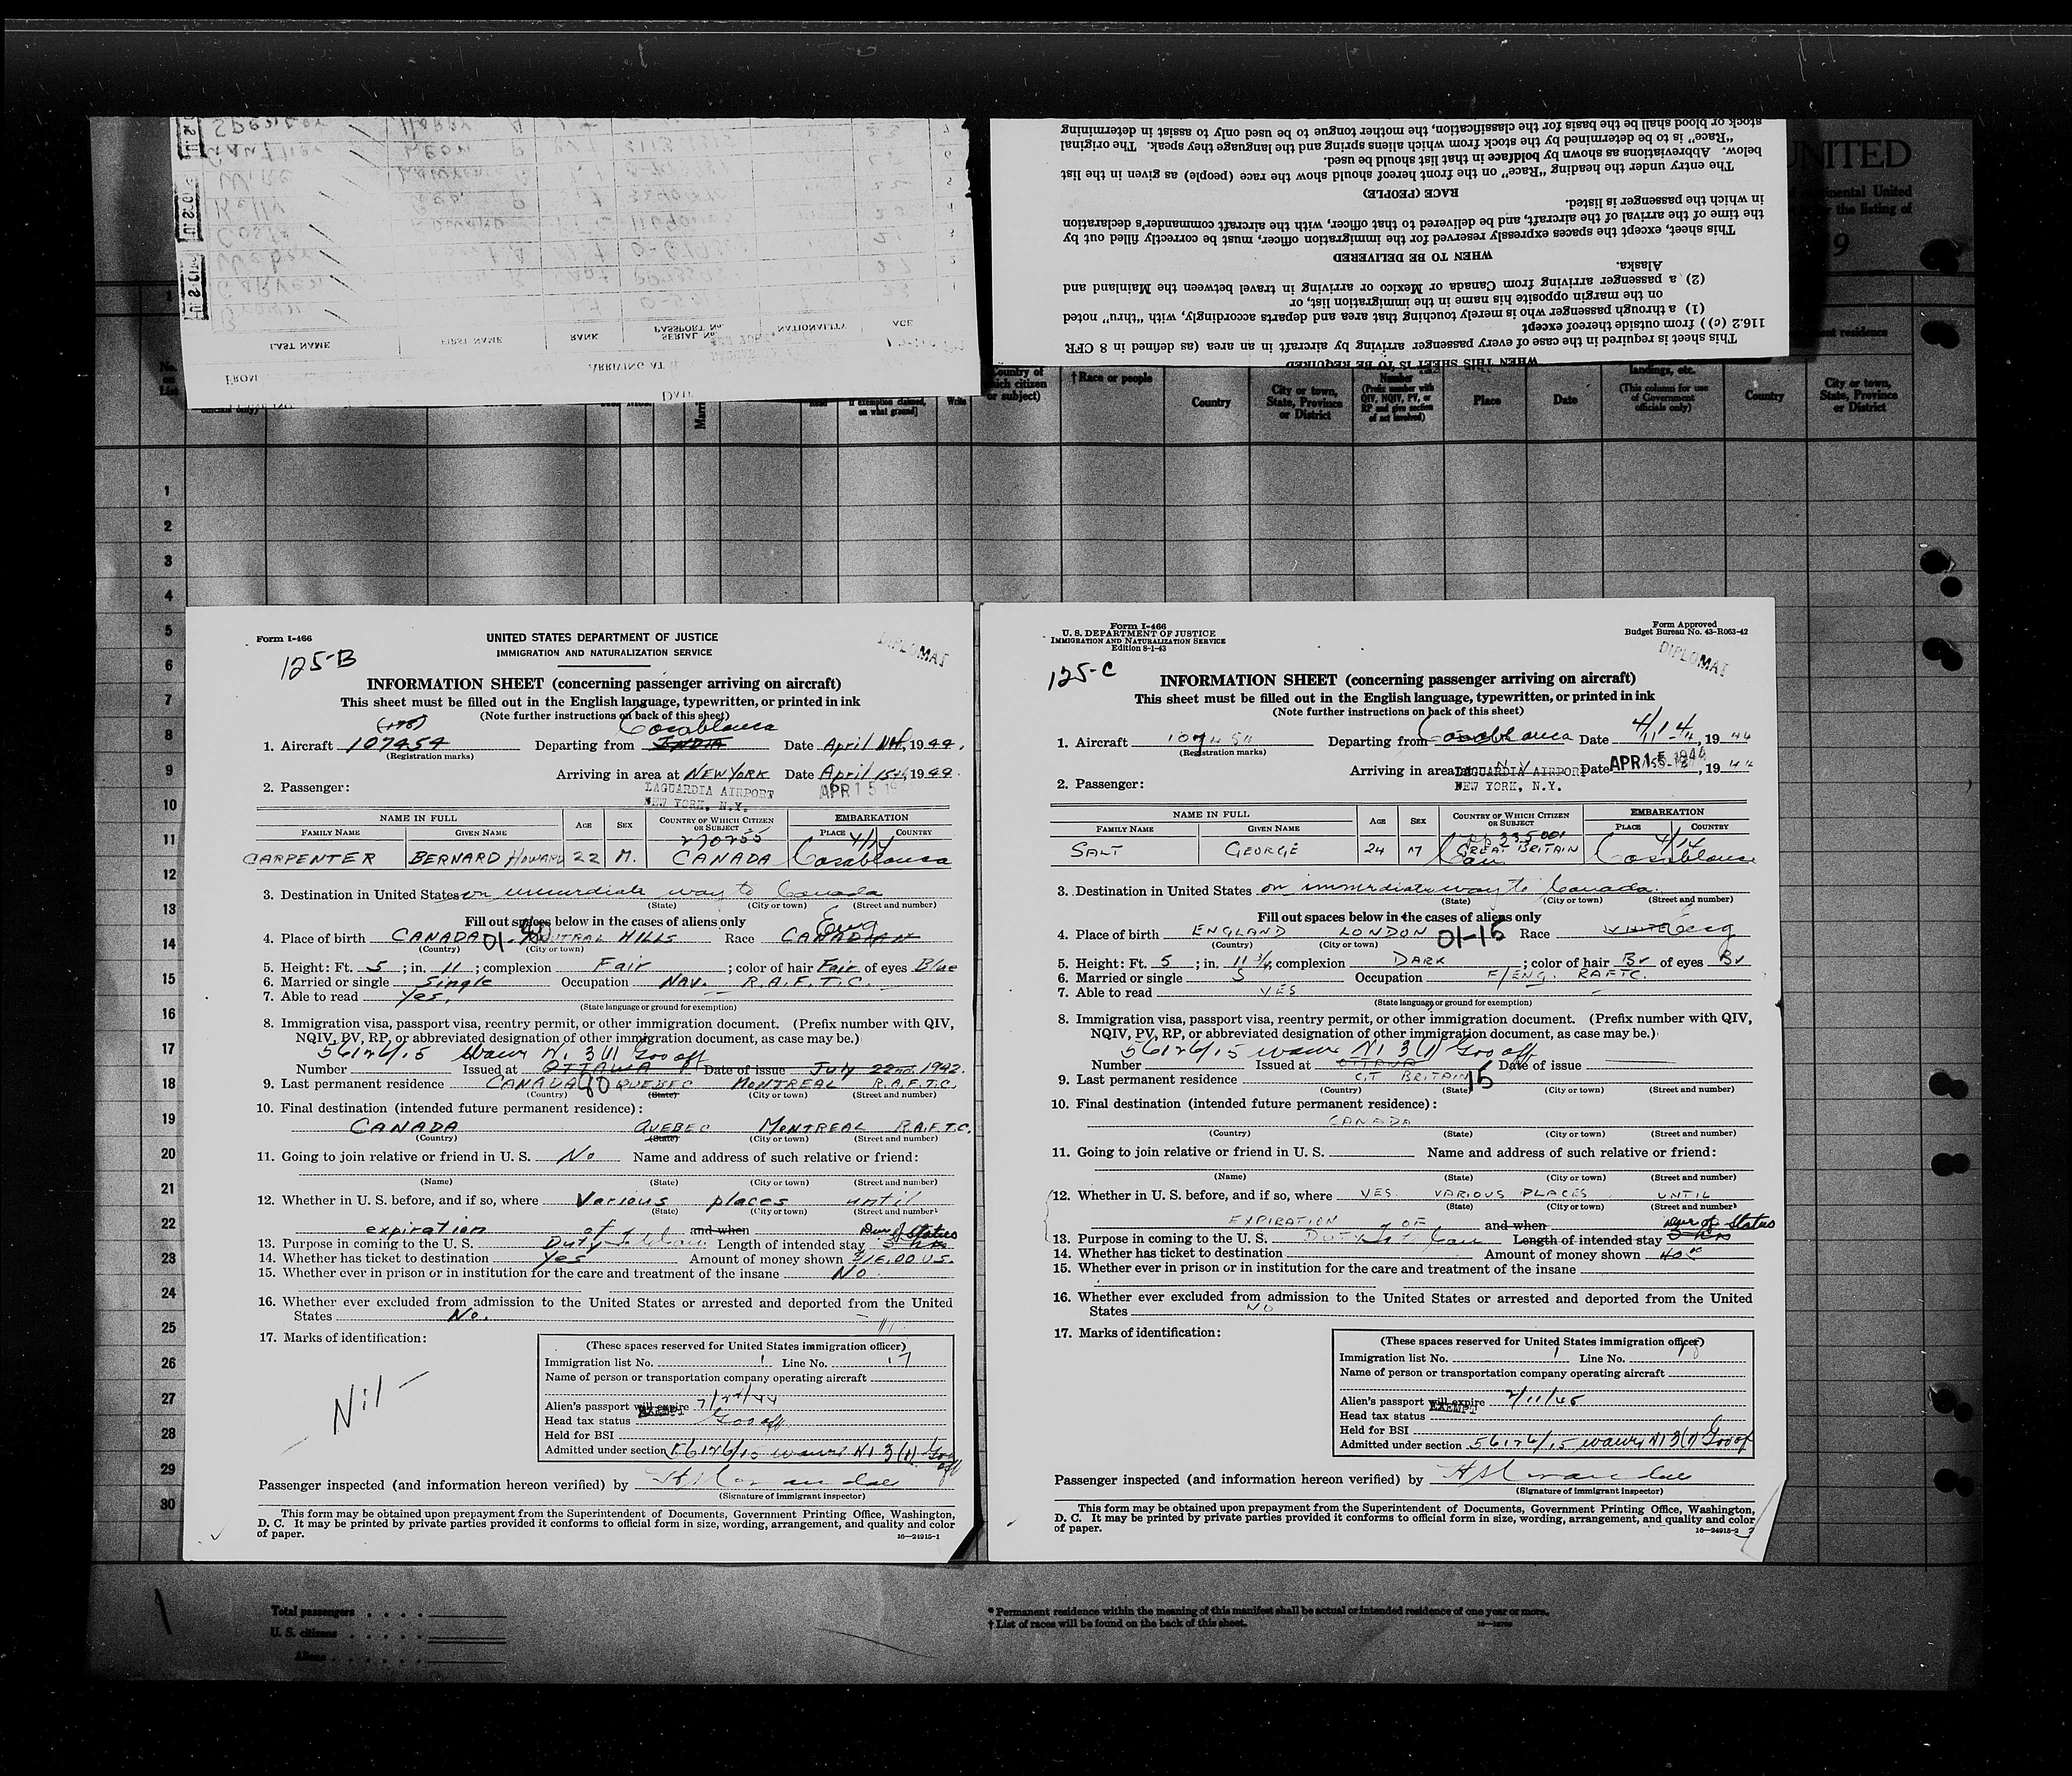 SPENCER HARRY A
GAUTHIER LEON
WIRE LAWRENCE
KELLY
COSTA
WEBER
GARVEN
LAST NAME FIRST NAME RANK SERIAL No. PASSPORT No. NATIONALITY AGE
FROM ARRIVING AT
DATE
stock or blood shall be the basis for the classification, the mother tongue to be used only to assist in determining
"Race" is to be determined by the stock from which aliens spring and the language they speak. The original
below. Abbreviations as shown by boldface in that list should be used.
The entry under the heading "Race" on the front hereof should show the race (people) as given in the list
RACE (PEOPLE)
in which the passenger is listed.
the time of the arrival of the aircraft, and be delivered to that officer, with the aircraft commander's declaration
This sheet, except the spaces expressly reserved for the immigration officer, must be correctly filled out by
WHEN TO BE DELIVERED
Alaska.
(2) a passenger arriving from Canada or Mexico or arriving in travel between the Mainland and
on the margin opposite his name in the immigration list, or
(1) a through passenger who is merely touching that area and departs accordingly, with "thru" noted
116.2 (c)) from outside thereof except
This sheet is required in the case of every passenger arriving by aircraft in an area (as defined in 8 CFR
WHEN THIS SHEET IS TO BE REQUIRED
UNITED
continental United
the listing of
9
No. on List
Country of which citizen or subject)
†Race or people
Country
City or town, State, Province or District
Number (Prefix number with QIV, NQIV, PV, or RP and give section of act involved)
Place
Date
landings, etc. (This column for use of Government officials only)
Country
City or town, State, Province or District
1
2
3
4
5
6
7
8
9
10
11
12
13
14
15
16
17
18
19
20
21
22
23
24
25
26
27
28
29
30
Form I-466
UNITED STATES DEPARTMENT OF JUSTICE
IMMIGRATION AND NATURALIZATION SERVICE
DIPLOMAT
125-B
INFORMATION SHEET (concerning passenger arriving on aircraft)
This sheet must be filled out in the English language, typewritten, or printed in ink
(Note further instructions on back of this sheet)
1. Aircraft 107454 Departing from INDIA Casablanca Date April 14, 1944.
(Registration marks)
Arriving in area at NEW YORK Date April 15th, 1944.
2. Passenger: LAGUARDIA AIRPORT NEW YORK, N.Y. APR 15 1944
NAME IN FULL AGE SEX COUNTRY OF WHICH CITIZEN OR SUBJECT EMBARKATION
FAMILY NAME GIVEN NAME PLACE COUNTRY
270255 4/14
CARPENTER BERNARD HOWARD 22 M. CANADA Casablanca
3. Destination in United States on immediate way to Canada
(State) (City or town) (Street and number)
Fill out spaces below in the cases of aliens only
4. Place of birth CANADA 01-40 NEUTRAL HILLS Race CANADIAN Eng
(Country) (City or town)
5. Height: Ft. 5; in. 11; complexion Fair; color of hair Fair of eyes Blue
6. Married or single Single Occupation NAV. R.A.F.T.C.
7. Able to read Yes.
(State language or ground for exemption)
8. Immigration visa, passport visa, reentry permit, or other immigration document. (Prefix number with QIV,
NQIV, PV, RP, or abbreviated designation of other immigration document, as case may be.)
56126/15 waive N1 3(1) Gov off
Number Issued at OTTAWA Date of issue July 22nd. 1942.
9. Last permanent residence CANADA 40 QUEBEC MONTREAL R.A.F.T.C.
(Country) (State) (City or town) (Street and number)
10. Final destination (intended future permanent residence):
CANADA QUEBEC MONTREAL R.A.F.T.C.
(Country) (State) (City or town) (Street and number)
11. Going to join relative or friend in U. S. No Name and address of such relative or friend:
(Name) (State) (City or town) (Street and number)
12. Whether in U. S. before, and if so, where Various places until
(State) (City or town) (Street and number)
expiration of and when Dur of Status
13. Purpose in coming to the U. S. Duty Length of intended stay 3 hrs
14. Whether has ticket to destination Yes Amount of money shown $16.00 U.S.
15. Whether ever in prison or in institution for the care and treatment of the insane No.
16. Whether ever excluded from admission to the United States or arrested and deported from the United
States No.
17. Marks of identification:
Nil
(These spaces reserved for United States immigration officer)
Immigration list No. 1 Line No. 17
Name of person or transportation company operating aircraft
Alien's passport will expire 7/22/44
Head tax status EXEMPT Gov off
Held for BSI
Admitted under section 56126/15 waive N1 3(1) Gov off
Passenger inspected (and information hereon verified) by
(Signature of immigrant inspector)
This form may be obtained upon prepayment from the Superintendent of Documents, Government Printing Office, Washington,
D. C. It may be printed by private parties provided it conforms to official form in size, wording, arrangement, and quality and color
of paper. 16—24915-1
Form I-466
U. S. DEPARTMENT OF JUSTICE
IMMIGRATION AND NATURALIZATION SERVICE
Edition 8-1-43
Form Approved
Budget Bureau No. 43-R063-42
DIPLOMAT
125-C
INFORMATION SHEET (concerning passenger arriving on aircraft)
This sheet must be filled out in the English language, typewritten, or printed in ink
(Note further instructions on back of this sheet)
1. Aircraft 107454 Departing from Casablanca Date 4/14, 1944
(Registration marks)
Arriving in area at LAGUARDIA AIRPORT Date APR 15 1944, 1944
2. Passenger: NEW YORK, N.Y.
NAME IN FULL AGE SEX COUNTRY OF WHICH CITIZEN OR SUBJECT EMBARKATION
FAMILY NAME GIVEN NAME PLACE COUNTRY
335001 4/14
SALT GEORGE 24 M GREAT BRITAIN Can Casablanca
3. Destination in United States on immediate way to Canada.
(State) (City or town) (Street and number)
Fill out spaces below in the cases of aliens only
4. Place of birth ENGLAND LONDON 01-15 Race WHITE Eng
(Country) (City or town)
5. Height: Ft. 5; in. 11 3/4; complexion DARK; color of hair Br of eyes Br
6. Married or single S Occupation F/ENG. RAFTC.
7. Able to read YES
(State language or ground for exemption)
8. Immigration visa, passport visa, reentry permit, or other immigration document. (Prefix number with QIV,
NQIV, PV, RP, or abbreviated designation of other immigration document, as case may be.)
56126/15 waive N1 3(1) Gov off
Number Issued at OTTAWA Date of issue
9. Last permanent residence GT BRITAIN 15
(Country) (State) (City or town) (Street and number)
10. Final destination (intended future permanent residence):
CANADA
(Country) (State) (City or town) (Street and number)
11. Going to join relative or friend in U. S. Name and address of such relative or friend:
(Name) (State) (City or town) (Street and number)
12. Whether in U. S. before, and if so, where YES. VARIOUS PLACES UNTIL
(State) (City or town) (Street and number)
EXPIRATION OF and when Dur of Status
13. Purpose in coming to the U. S. DUTY Length of intended stay 3 hrs
14. Whether has ticket to destination Amount of money shown 40
15. Whether ever in prison or in institution for the care and treatment of the insane
16. Whether ever excluded from admission to the United States or arrested and deported from the United
States NO
17. Marks of identification:
(These spaces reserved for United States immigration officer)
Immigration list No. 1 Line No. 18
Name of person or transportation company operating aircraft
Alien's passport will expire 2/11/45
Head tax status EXEMPT
Held for BSI
Admitted under section 56126/15 waive N1 3(1) Gov of
Passenger inspected (and information hereon verified) by
(Signature of immigrant inspector)
This form may be obtained upon prepayment from the Superintendent of Documents, Government Printing Office, Washington,
D. C. It may be printed by private parties provided it conforms to official form in size, wording, arrangement, and quality and color
of paper. 16—24915-2
Total passengers
U. S. citizens
Aliens
* Permanent residence within the meaning of this manifest shall be actual or intended residence of one year or more.
† List of races will be found on the back of this sheet.